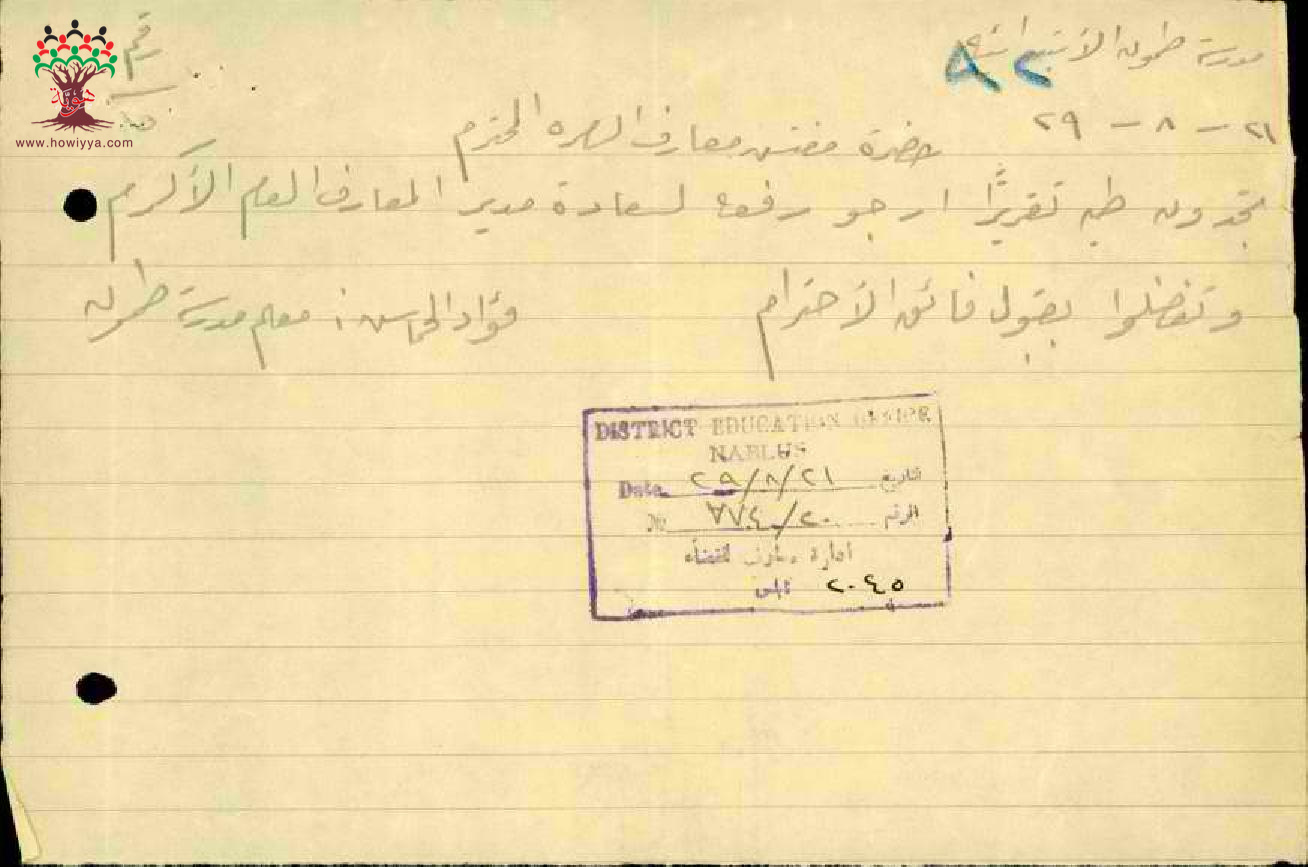 مدرسة طمون الابتدائية
٨٢
رقم
٢١ - ٨ - ٢٩
حضرة مفتش معارف المحترم
تجدون طيه تقريرًا ارجو رفعه لسعادة مدير المعارف العام الأكرم
وتفضلوا بقبول فائق الاحترام
فؤاد : معلم مدرسة طمون
www.howiyya.com
DISTRICT EDUCATION OFFICE
NABLUS
Date ٢٩/٨/٢١ تاريخ
№ ٧٧٤/٢٠ الرقم
ادارة معارف القضاء
٢٠٤٥ نابلس